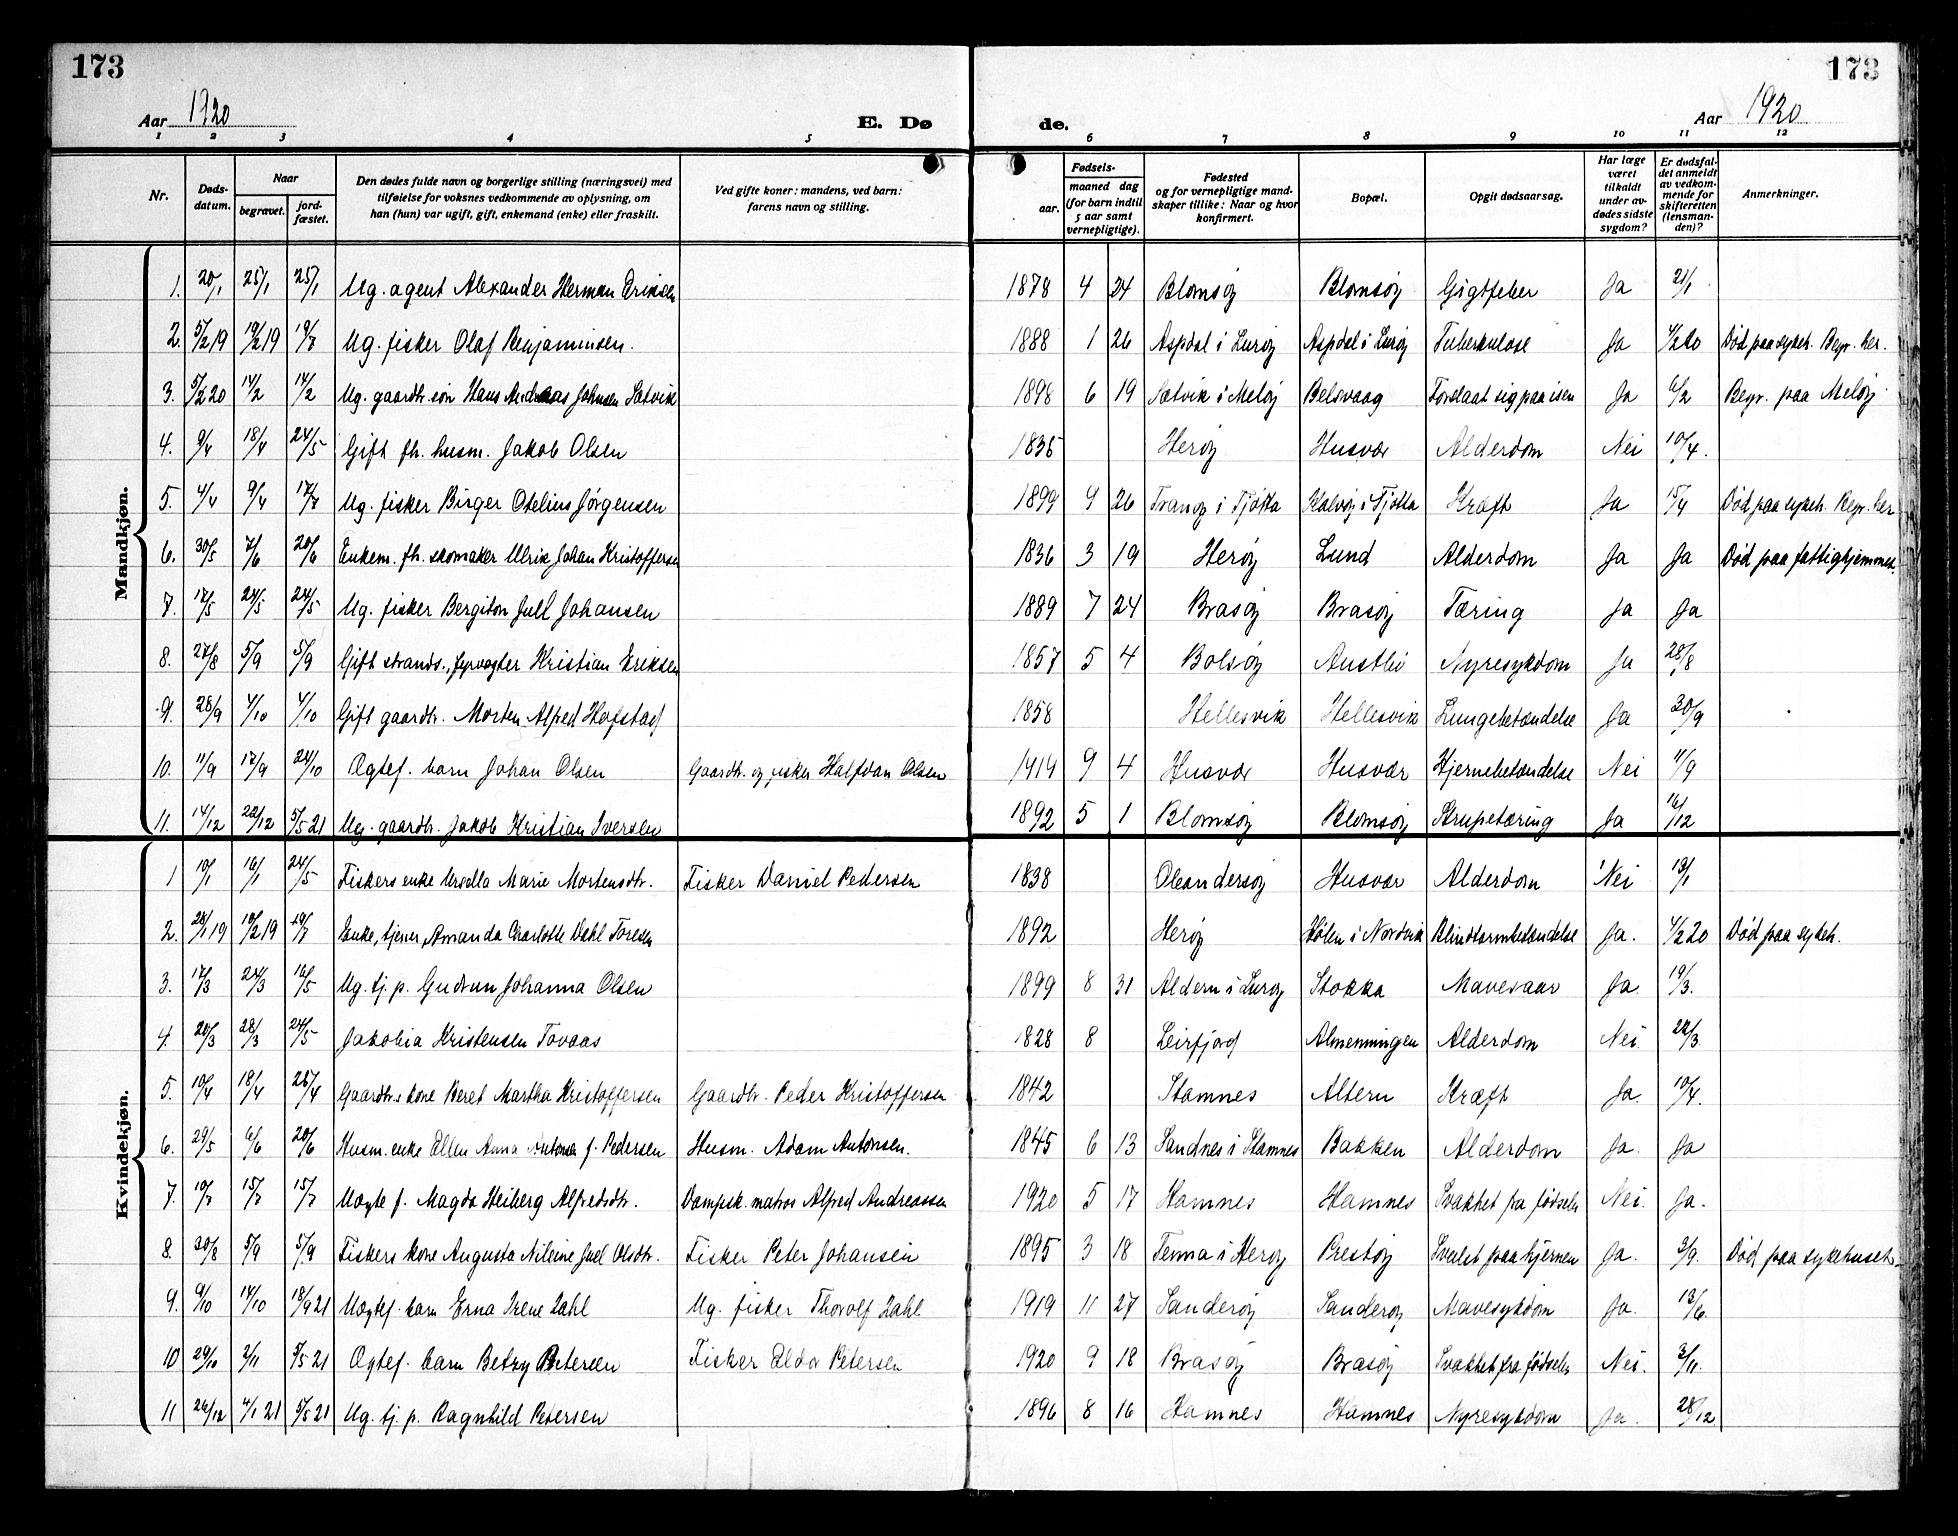 173
173
Aar 1920
E. Dø
de.
Aar 1920
1 2 3 4 5 6 7 8 9 10 11 12
Nr.
Døds-
datum.
Naar
begravet.
jord-
fæstet.
Den dødes fulde navn og borgerlige stilling (næringsvei) med
tilføielse for voksnes vedkommende av oplysning, om
han (hun) var ugift, gift, enkemand (enke) eller fraskilt.
Ved gifte koner: mandens, ved barn:
farens navn og stilling.
Fødsels-
aar.
maaned dag
(for barn indtil
5 aar samt
vernepligtige).
Fødested
og for vernepligtige mand-
skaper tillike: Naar og hvor
konfirmert.
Bopæl.
Opgit dødsaarsag.
Har læge
været
tilkaldt
under av-
dødes sidste
sygdom?
Er dødsfal-
det anmeldt
av vedkom-
mende for
skifteretten
(lensman-
den)?
Anmerkninger.
Mandkjøn.
1. 20/1 25/1 25/1 Ug. agent Alexander Herman Eriksen 1878 4 24 Blomsøy Blomsøy Gigtfeber Ja 21/1
2. 5/2 19 19/2 19 19/7 Ug. fisker Olaf Benjaminsen. 1888 1 26 Aspdal i Lurøy Aspdal i Lurøy Tuberkulose Ja 4/2 20 Død paa sykeh. Begr. her.
3. 5/2 20 14/2 14/2 Ug. gaardbr. søn Hans Andreas Johnsen Sætvik 1898 6 19 Sætvik i Meløy Belsvaag Forslaat sig paa isen Ja 6/2 Begr. paa Meløy
4. 9/4 18/4 24/5 Gift fh. husm. Jakob Olsen 1835 Herøy Husvær Alderdom Nei 10/4.
5. 4/4 9/4 17/7 Ug. fisker Birger Otelius Jørgensen 1899 9 26 Tranøy i Tjøtta Kalvøy i Tjøtta Kræft Ja 15/4 Død paa sykeh. Begr. her
6. 30/5 7/6 20/6 Enkem. fh. skomaker Ulrik Johan Kristoffersen 1836 3 19 Herøy Lund Alderdom Ja Ja Død paa fattighjemmet.
7. 17/5 24/5 24/5 Ug. fisker Bergiton Jull Johansen 1889 7 24 Brasøy Brasøy Tæring Ja Ja
8. 27/8 5/9 5/9 Gift strands., fyrvogter Kristian Eriksen 1857 5 4 Bolsøy Austbø Nyresykdom Ja 28/8
9. 28/9 4/10 4/10 Gift gaardbr. Morten Alfred Hofstad 1858 Hellesvik Hellesvik Lungebetændelse Ja 30/9
10. 11/9 17/9 24/10 Ægtef. barn Johan Olsen Gaardbr. og fisker Halfdan Olsen 1919 9 4 Husvær Husvær Hjernebetændelse Nei 11/9
11. 14/12 22/12 5/5 21 Ug. gaardbr. Jakob Kristian Iversen 1892 5 1 Blomsøy Blomsøy Strupetæring Ja 16/12
Kvindekjøn.
1 10/1 16/1 24/5 Fiskers enke Marie Mortensdtr. Fisker Daniel Pedersen 1838 Oxandersøy Husvær Alderdom Nei 13/1
2. 28/1 19 10/2 19 19/7 Enke, tjener, Amanda Charlotte Dahl Toresen 1892 Herøy Hølen i Nordvik Blindtarmbetændelse Ja. 4/2 20 Død paa sykeh.
3. 17/3 24/3 16/5 Ug. tj. p. Gudrun Johanna Olsen 1899 8 31 Aldern i Lurøy Stokka Mavesaar Ja. 19/3.
4. 20/3 28/3 24/5 Jakobia Kristensen Tovaas 1828 8 Leirfjord Almenningen Alderdom Nei. 22/3.
5. 10/4 18/4 26/4 Gaardbr.s kone Beret Martha Kristoffersen Gaardbr. Peder Kristoffersen 1842 Stamnes Altern Kræft Ja. 10/4.
6. 29/5 6/6 20/6 Husm. enke Ellen Anna Antonsen f. Pedersen Husm. Adam Antonsen. 1845 6 13 Sandnes i Stamnes Bakken Alderdom Ja. Ja
7. 10/7 15/7 15/7 Uægte f. Magda Heiberg Alfredsdtr. Dampsk. matros Alfred Andreassen 1920 5 17 Hamnes Hamnes Svakhet fra fødselen Nei. Ja.
8. 30/8 5/9 5/9 Fiskers kone Augusta Nileine Juel Olsdtr. Fisker Peter Johansen 1895 3 18 Tenna i Herøy Prestøy Svulst paa hjernen Ja. 3/9. Død paa sykehuset.
9. 9/10 14/10 18/9 21 Uægtef. barn Erna Irene Zahl Ug. fisker Thorolf Zahl 1919 11 27 Sanderøy Sanderøy Mavesykdom Ja. 13/6.
10 29/10 2/11 5/5 21 Ægtef. barn Betzy Petersen Fisker Eldor Petersen 1920 9 18 Brasøy Brasøy Svakhet fra fødselen Nei. 3/11.
11 26/12 4/1 21 5/5 21 Ug. tj. p. Ragnhild Petersen 1896 8 16 Hamnes Hamnes Nyresykdom Ja. 28/12